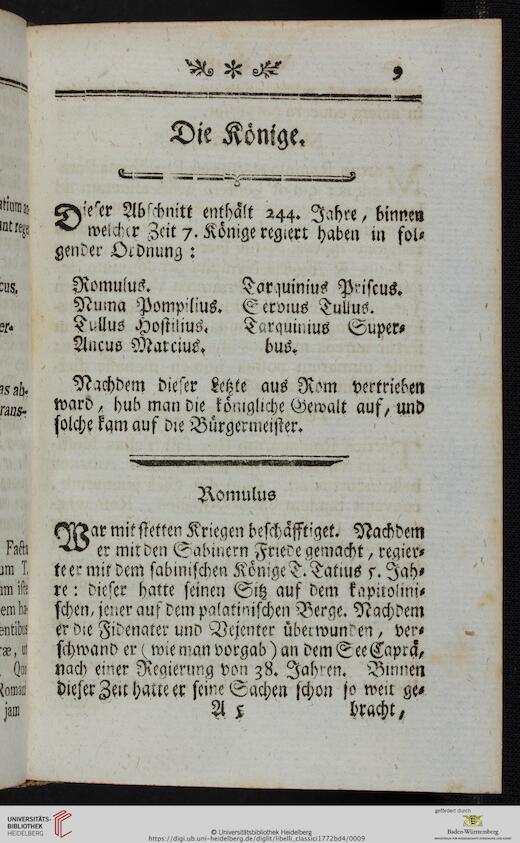 9
Die Könige.
Dieser Abschnitt enthält 244. Jahre, binnen
welcher Zeit 7. Könige regiert haben in fol-
gender Ordnung:
Romulus. Tarquinius Priscus.
Numa Pompilius. Servius Tullus.
Tullus Hostilius. Tarquinius Super-
Ancus Marcius. bus.
Nachdem dieser Letzte aus Rom vertrieben
ward, hub man die königliche Gewalt auf, und
solche kam auf die Bürgermeister.
Romulus
War mit stetten Kriegen beschäfftiget. Nachdem
er mit den Sabinern Friede gemacht, regier-
te er mit dem sabinischen Könige T. Tatius 5. Jah-
re: dieser hatte seinen Sitz auf dem kapitolini-
schen, jener auf dem palatinischen Berge. Nachdem
er die Fidenater und Vejenter überwunden, ver-
schwand er (wie man vorgab) an dem See Caprä,
nach einer Regierung von 38. Jahren. Binnen
dieser Zeit hatte er seine Sachen schon so weit ge-
A 5 bracht,
UNIVERSITÄTS-
BIBLIOTHEK
HEIDELBERG
© Universitätsbibliothek Heidelberg
https://digi.ub.uni-heidelberg.de/diglit/libelli_classici1772bd4/0009
gefördert durch
Baden-Württemberg